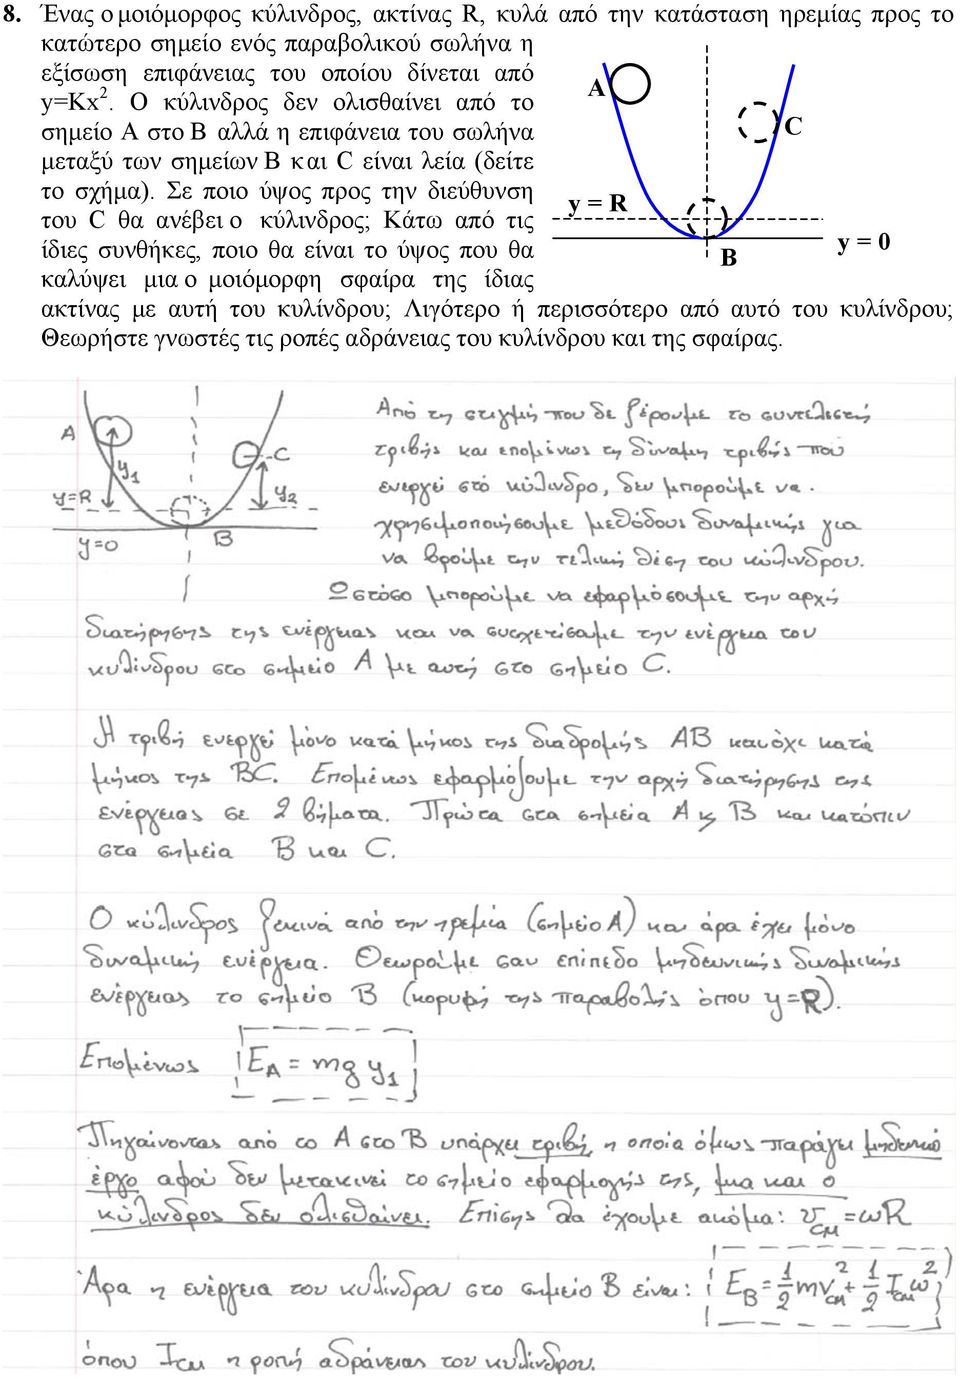 8. Ένας ομοιόμορφος κύλινδρος, ακτίνας R, κυλά από την κατάσταση ηρεμίας προς το
κατώτερο σημείο ενός παραβολικού σωλήνα η
εξίσωση επιφάνειας του οποίου δίνεται από
y=Kx². Ο κύλινδρος δεν ολισθαίνει από το
σημείο Α στο Β αλλά η επιφάνεια του σωλήνα
μεταξύ των σημείων Β και C είναι λεία (δείτε
το σχήμα). Σε ποιο ύψος προς την διεύθυνση
του C θα ανέβει ο κύλινδρος; Κάτω από τις
ίδιες συνθήκες, ποιο θα είναι το ύψος που θα
καλύψει μια ομοιόμορφη σφαίρα της ίδιας
ακτίνας με αυτή του κυλίνδρου; Λιγότερο ή περισσότερο από αυτό του κυλίνδρου;
Θεωρήστε γνωστές τις ροπές αδράνειας του κυλίνδρου και της σφαίρας.
A
C
y = R
y = 0
B
A
y₁
C
y=R
y₂
y=0
B
Από τη στιγμή που δε ξέρουμε το συντελεστή
τριβής και επομένως τη δύναμη τριβής που
ενεργεί στο κύλινδρο, δεν μπορούμε να
χρησιμοποιήσουμε μεθόδους δυναμικής για
να βρούμε την τελική θέση του κυλίνδρου.
Ωστόσο μπορούμε να εφαρμόσουμε την αρχή
διατήρησης της ενέργειας και να συσχετίσουμε την ενέργεια του
κυλίνδρου στο σημείο Α με αυτή στο σημείο C.
Η τριβή ενεργεί μόνο κατά μήκος της διαδρομής ΑΒ και όχι κατά
μήκος της BC. Επομένως εφαρμόζουμε την αρχή διατήρησης της
ενέργειας σε 2 βήματα. Πρώτα στα σημεία Α κ Β και κατόπιν
στα σημεία Β και C.
Ο κύλινδρος ξεκινά από την ηρεμία (σημείο Α) και άρα έχει μόνο
δυναμική ενέργεια. Θεωρούμε σαν επίπεδο μηδενικής δυναμικής
ενέργειας το σημείο Β (κορυφή της παραβολής όπου y=R).
Επομένως E_A = mg y₁
Πηγαίνοντας από το Α στο Β υπάρχει τριβή, η οποία όμως παράγει μηδενικό
έργο αφού δεν μετακινεί το σημείο εφαρμογής της, μια και ο
κύλινδρος δεν ολισθαίνει. Επίσης θα έχουμε ακόμα: υ_CM = ωR
Άρα η ενέργεια του κυλίνδρου στο σημείο Β είναι: E_B = 1/2 mv²_CM + 1/2 I_CM ω²
όπου I_CM η ροπή αδράνειας του κυλίνδρου.